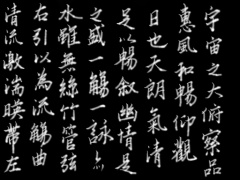 宇宙之大俯察品
惠風和暢仰觀
日也天朗氣清
足以暢叙幽情是
之盛一觴一詠亦
水雖無絲竹管弦
右引以為流觴曲
清流激湍暎帶左